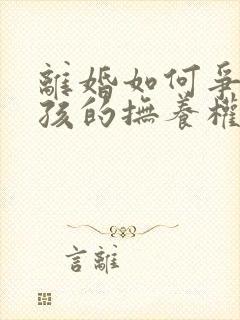 離婚如何爭
孩的撫養權
言離